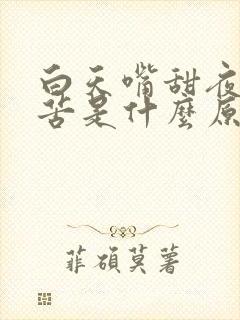 白天嘴甜夜
苦是什麼原
菲碩莫薯